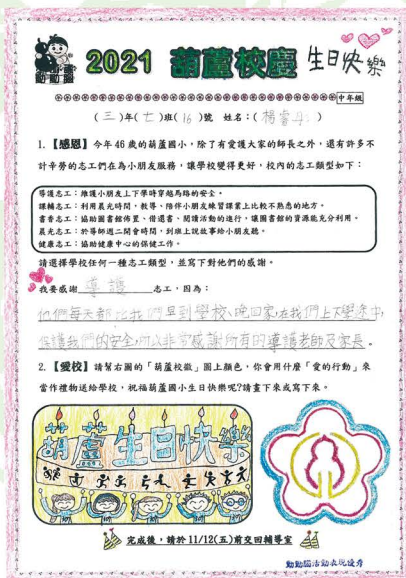 動動腦
2021 葫蘆校慶 生日快樂
中年級
(三)年(七)班(16)號 姓名:(楊睿丹)
1.【感恩】今年46歲的葫蘆國小,除了有愛護大家的師長之外,還有許多不
計辛勞的志工們在為小朋友服務,讓學校變得更好,校內的志工類型如下:
導護志工:維護小朋友上下學時穿越馬路的安全。
課輔志工:利用晨光時間,教導、陪伴小朋友練習課業上比較不熟悉的地方。
書香志工:協助圖書館佈置、借還書、閱讀活動的進行,讓圖書館的資源能充分利用。
晨光志工:於導師週二開會時間,到班上說故事給小朋友聽。
健康志工:協助健康中心的保健工作。
請選擇學校任何一種志工類型,並寫下對他們的感謝。
我要感謝 導護 志工,因為:
他們每天都比我們早到學校、晚回家,在我們上下學途中,
保護我們的安全,所以非常感謝所有的導護老師及家長。
2.【愛校】請幫右圖的「葫蘆校徽」圖上顏色,你會用什麼「愛的行動」來
當作禮物送給學校,祝福葫蘆國小生日快樂呢?請畫下來或寫下來。
葫蘆生日快樂
完成後,請於11/12(五)前交回輔導室
動動腦活動表現優秀